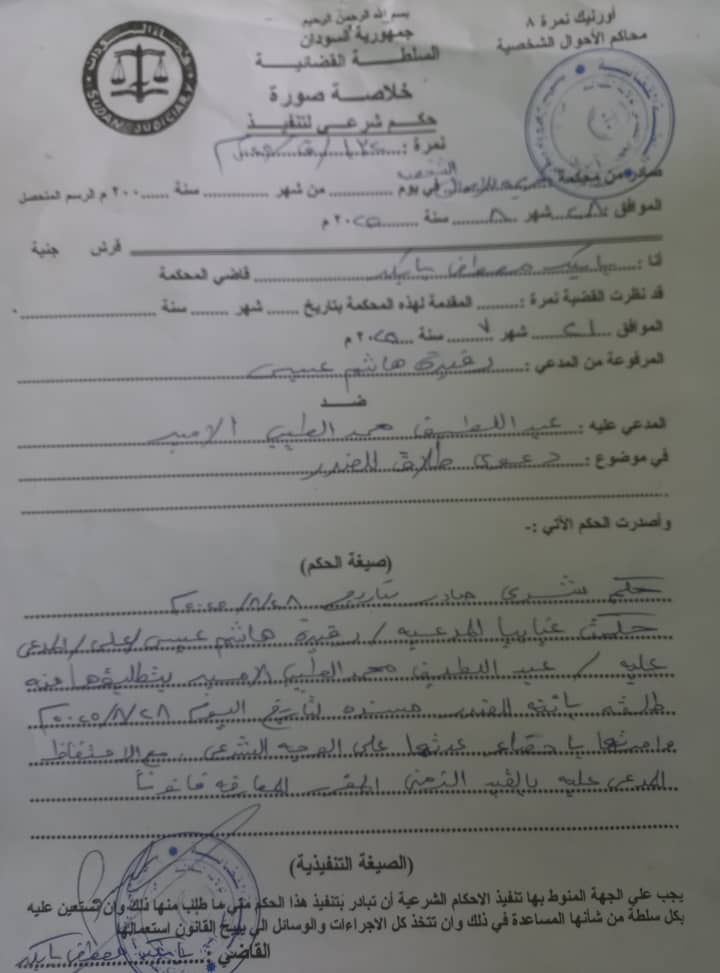 أورنيك نمرة ٨
محاكم الأحوال الشخصية
بسم الله الرحمن الرحيم
جمهورية السودان
السلطة القضائية
SUDAN JUDICIARY
خلاصة صورة
حكم شرعي لتنفيذ
نمرة :
صادر من محكمة الشخصية في يوم ............ من شهر ............ سنة ......٢٠٠ م الرسم المتحصل
الموافق ٢٨ شهر ٨ سنة ٢٠٢٥ م
قرش جنية
أنا : مصطفى قاضي المحكمة
قد نظرت القضية نمرة : ......... المقدمة لهذه المحكمة بتاريخ ....... شهر ........ سنة
الموافق ٢١ شهر ٧ سنة ٢٠٢٥ م
المرفوعة من المدعي : هاشم عيسى
ضد
المدعي عليه : عبد اللطيف محمد الطيب الامير
في موضوع : دعوى طلاق للضرر
وأصدرت الحكم الآتي :-
(صيغة الحكم)
حكم شرعي صادر بتاريخ ٢٠٢٥/٨/٢٨
حكمت غيابيا للمدعية / هاشم عيسى / على / المدعى
عليه / عبد اللطيف محمد الطيب الامير بتطليقها منه
طلقة بائنة للضرر مسندة لتاريخ اليوم ٢٠٢٥/٨/٢٨
وامرتها باحصاء عدتها على الوجه الشرعي . مع الاحتفاظ
المدعى عليه بالقيد الزمني المقرر للمعارضة قانوناً
(الصيغة التنفيذية)
يجب علي الجهة المنوط بها تنفيذ الاحكام الشرعية أن تبادر بتنفيذ هذا الحكم متي ما طلب منها ذلك وان تستعين عليه
بكل سلطة من شأنها المساعدة في ذلك وان تتخذ كل الاجراءات والوسائل التي يبيح القانون استعمالها
القاضي : مصطفى